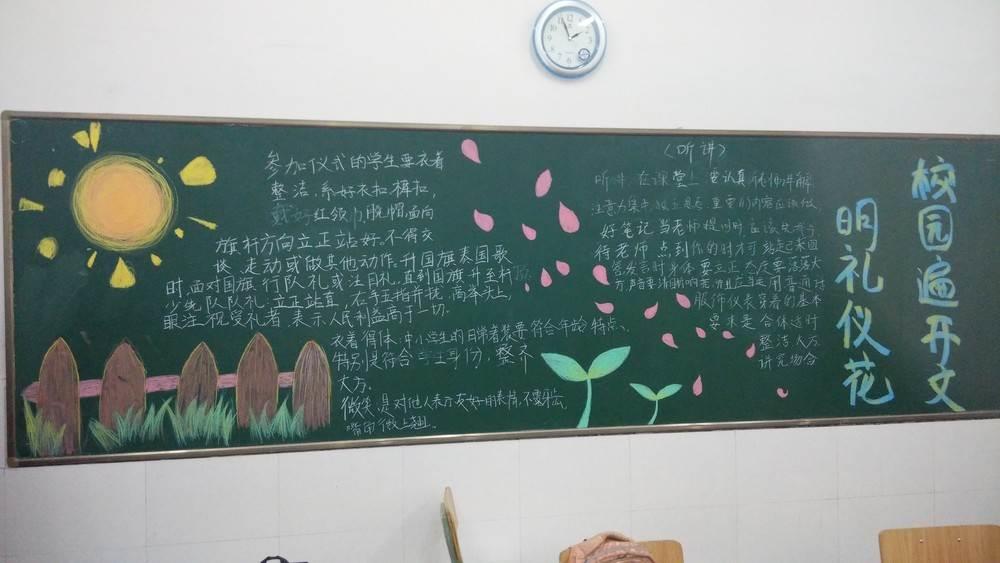 参加仪式的学生要衣着
整洁,系好衣扣、裤扣,
戴好红领巾脱帽,面向
旗杆方向立正站好,不得交
谈、走动或做其他动作,升国旗奏国歌
时,面对国旗行队礼或注目礼,直到国旗升至杆顶,
少先队队礼:立正站直,右手五指并拢,高举头上,
眼注视受礼者,表示人民利益高于一切.
衣着得体:中小学生的日常着装要符合年龄特点、
特别是符合学生身份,整齐
大方.
微笑:是对他人表示友好的表情,不要
嘴角微上翘.
(听讲)
听讲:在课堂上,要认真 讲解
注意力集中
好笔记 当老师提问时
待老师 点到你的时才可站起已来回
答发言时身体要立正 态度要落落大
用普通对
服饰仪表穿着的基本
要求是 合体适时
整洁大方
讲究
校园遍开文
明礼仪花